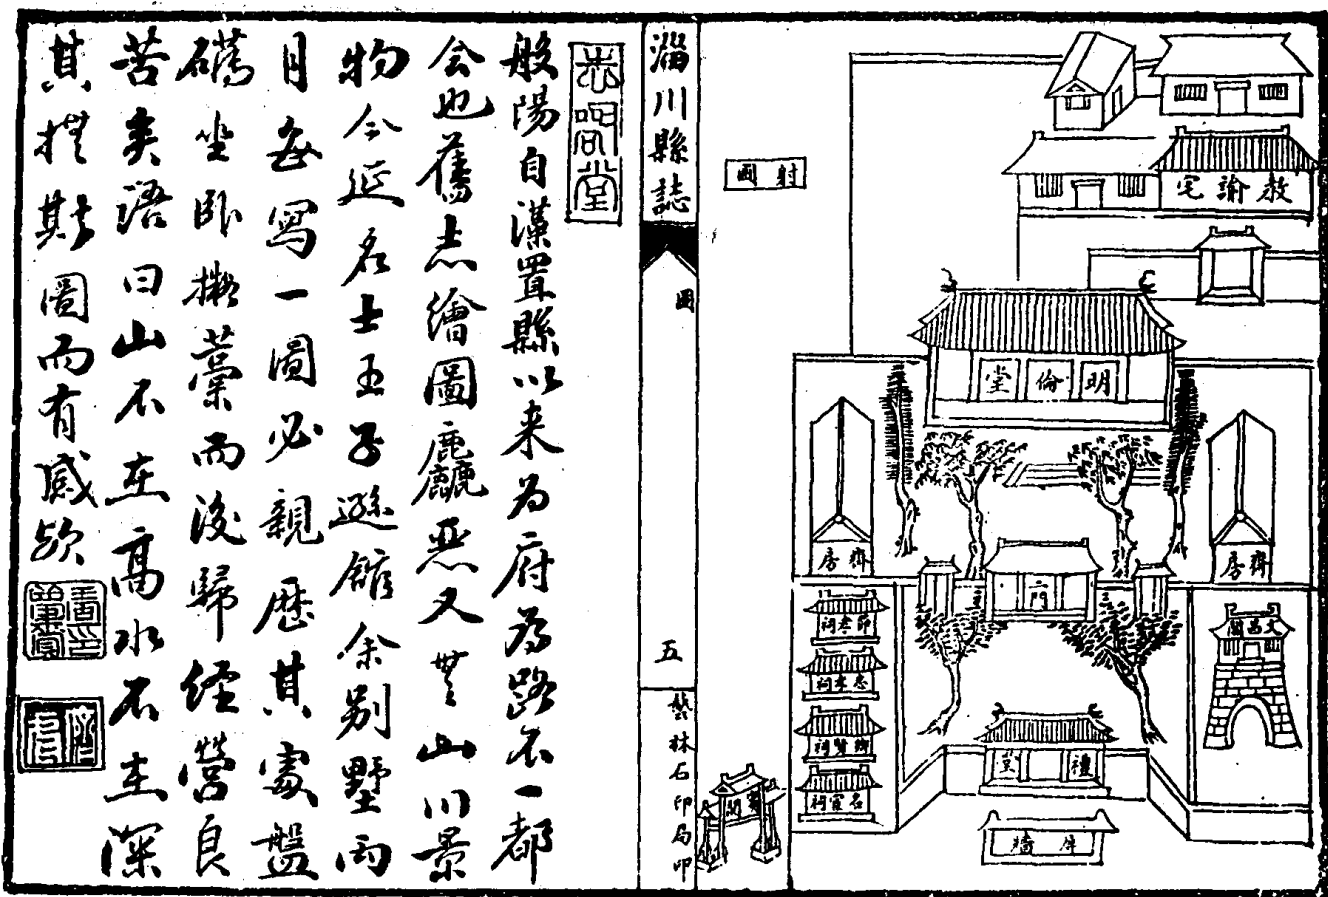 教諭宅
射圃
明倫堂
齊房
齊房
二門
文昌閣
節孝祠
忠孝祠
鄉賢祠
名宦祠
禮
屏墻
淄川縣誌
圖
五
藝林石印局印
般陽自漢置縣以来為府為路不一都
会也舊志繪圖麤惡又無山川景
物今延名士王子遜館余别墅両
月每寫一圖必親歷其處盤
礴坐卧擬藁而後歸經營良
苦矣語曰山不在高水不在深
其撫斯圖而有感欤